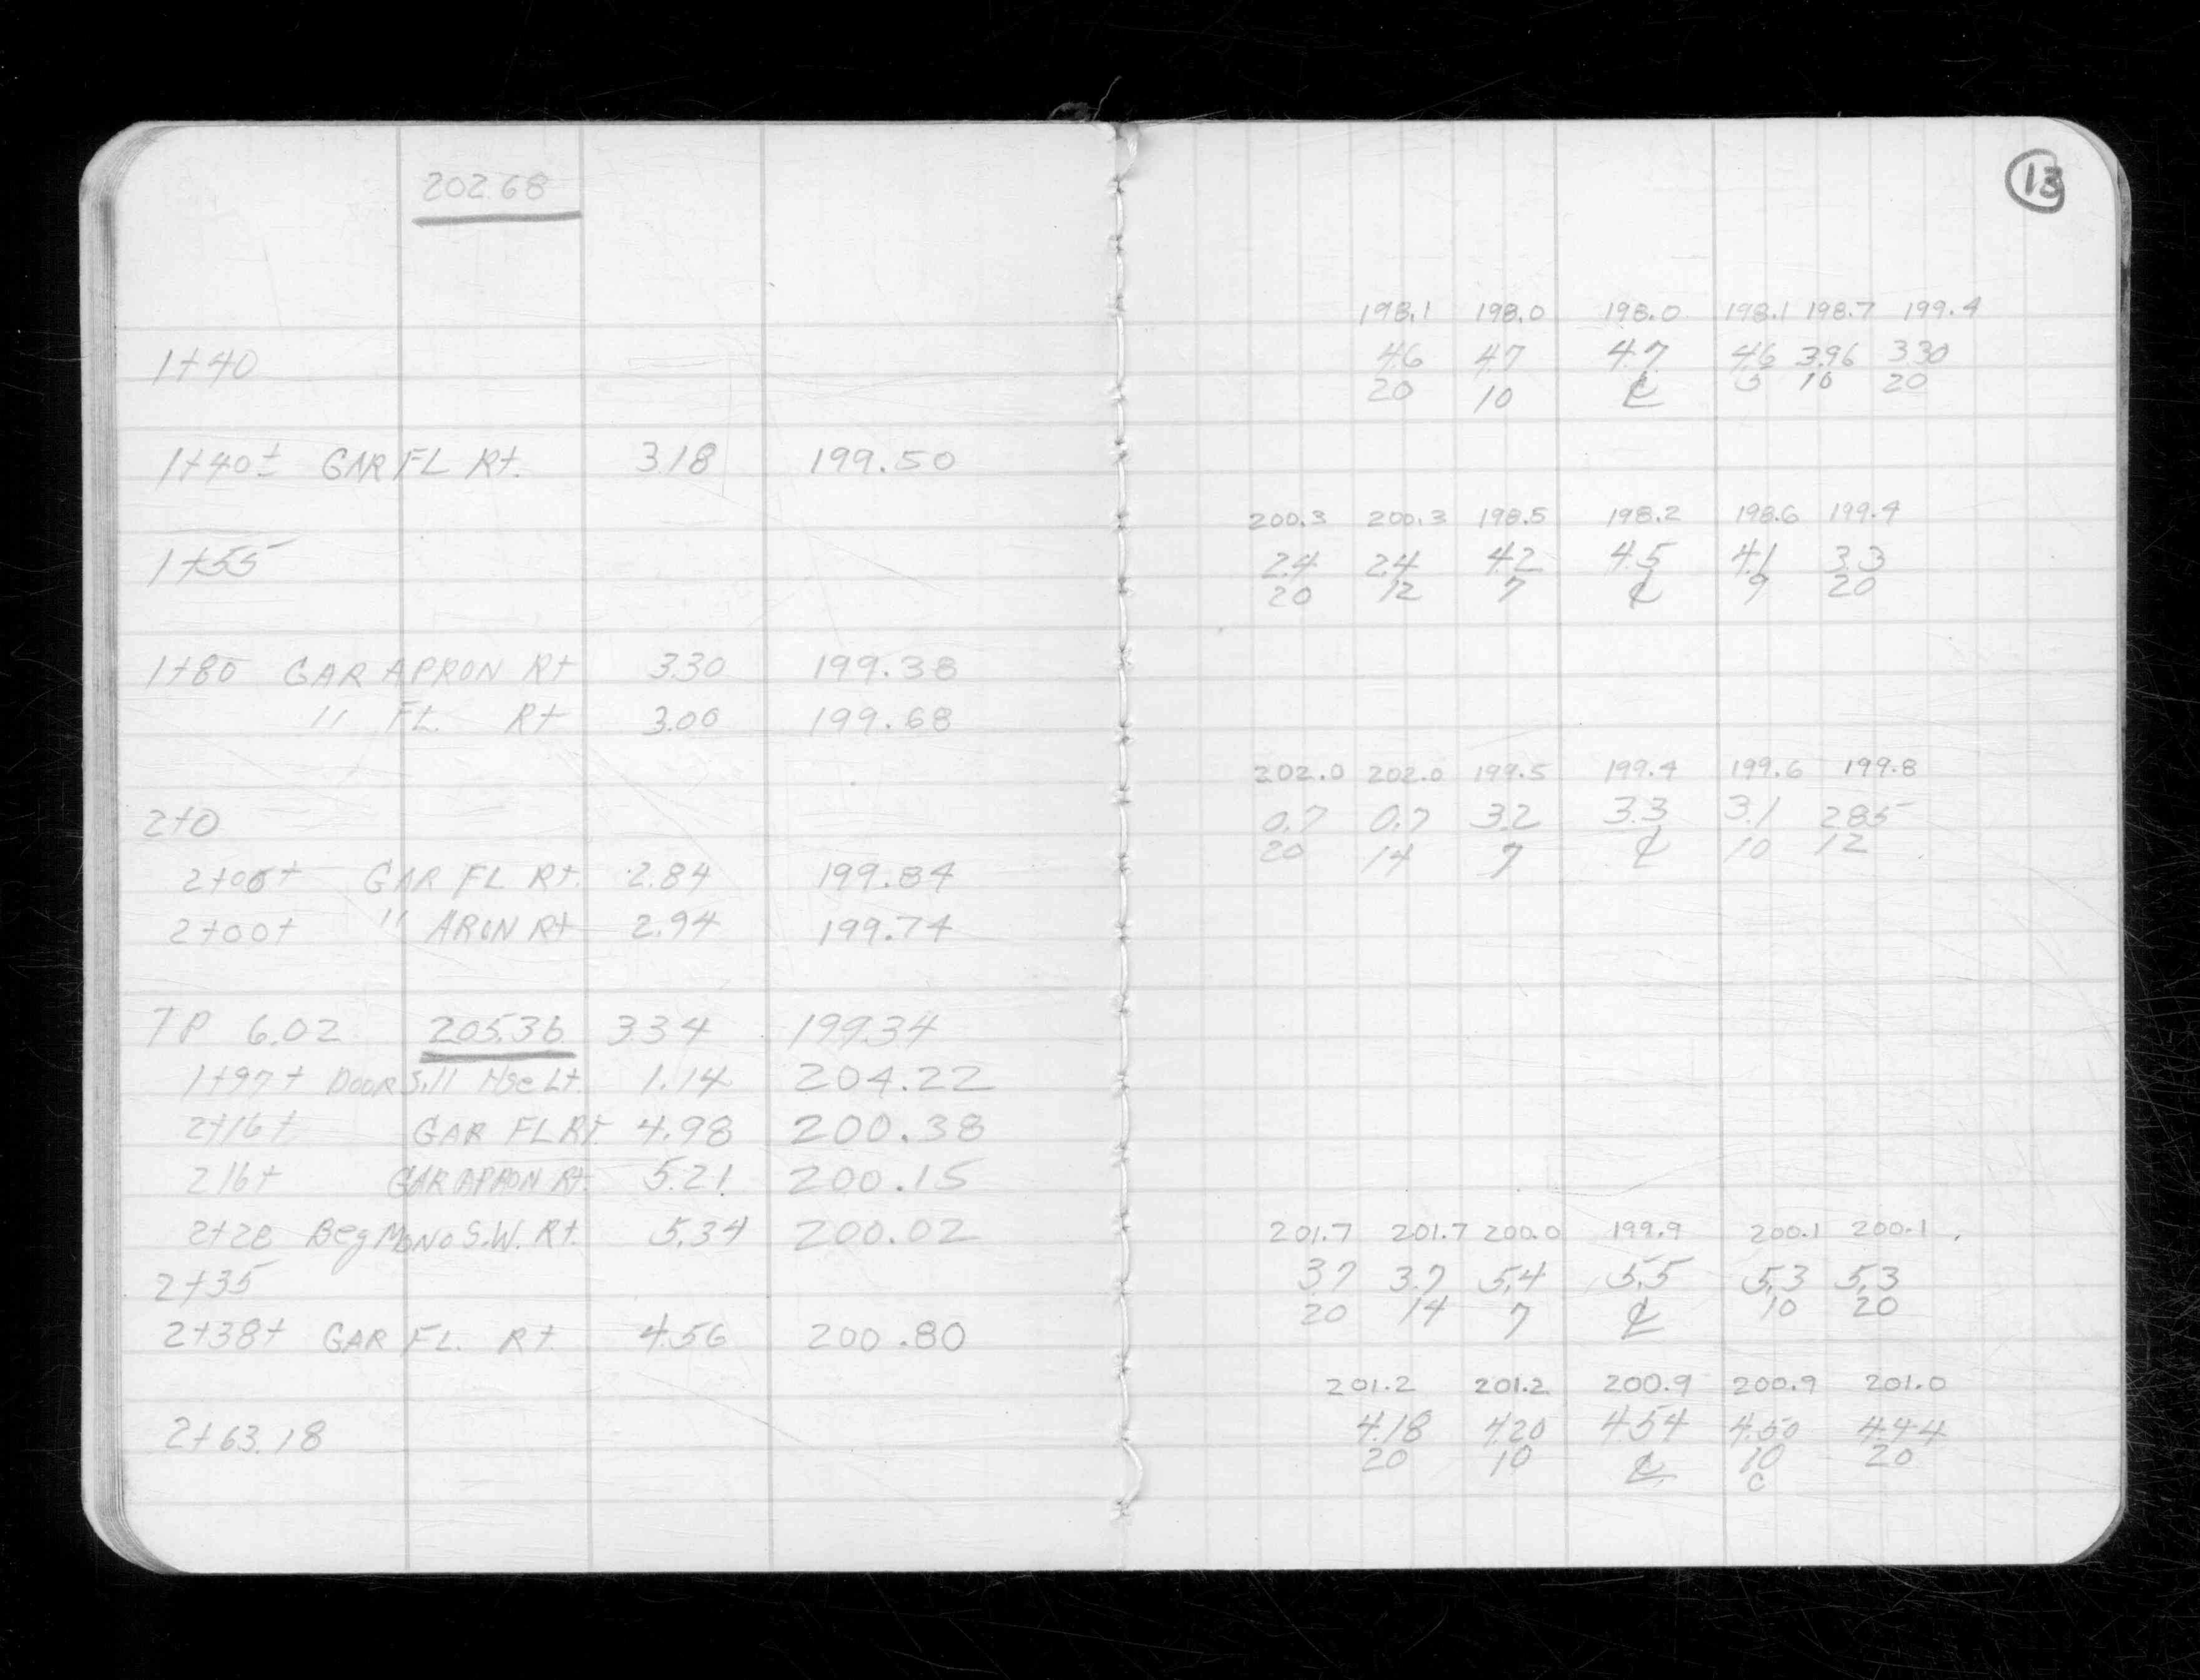 202.68
13
198.1 198.0 198.0 198.1 198.7 199.4
1+40 4.6 4.7 4.7 4.6 3.96 3.30
20 10 ℄ 5 10 20
1+40± GAR FL Rt. 3.18 199.50
200.3 200.3 198.5 198.2 198.6 199.4
1+55 2.4 2.4 4.2 4.5 4.1 3.3
20 12 7 ℄ 9 20
1+80 GAR APRON Rt 3.30 199.38
" FL. Rt 3.00 199.68
202.0 202.0 199.5 199.4 199.6 199.8
2+0 0.7 0.7 3.2 3.3 3.1 2.85
20 14 7 ℄ 10 12
2+00+ GAR FL Rt. 2.84 199.84
2+00+ " ARON Rt 2.94 199.74
TP 6.02 205.36 3.34 199.34
1+97+ DOOR Sill Hse Lt. 1.14 204.22
2+16+ GAR FL Rt 4.98 200.38
216+ GAR APRON Rt. 5.21 200.15
2+28 Beg MONO S.W. Rt. 5.34 200.02
201.7 201.7 200.0 199.9 200.1 200.1
2+35 3.7 3.7 5.4 5.5 5.3 5.3
20 14 7 ℄ 10 20
2+38+ GAR FL. Rt. 4.56 200.80
201.2 201.2 200.9 200.9 201.0
2+63.18 4.18 4.20 4.54 4.50 4.44
20 10 ℄ 10 20
C